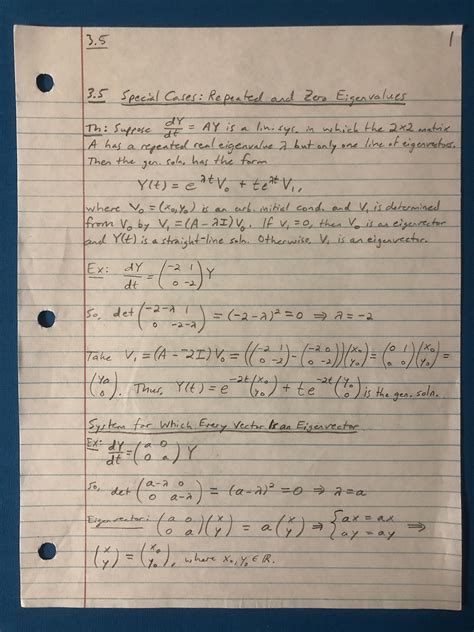 3.5 1
3.5 Special Cases: Repeated and Zero Eigenvalues
Th: Suppose dY/dt = AY is a lin. sys. in which the 2x2 matrix
A has a repeated real eigenvalue λ but only one line of eigenvectors.
Then the gen. soln. has the form
Y(t) = e^{λt} V₀ + te^{λt} V₁,
where V₀ = (x₀, y₀) is an arb. initial cond. and V₁ is determined
from V₀ by V₁ = (A - λI)V₀. If V₁ = 0, then V₀ is an eigenvector
and Y(t) is a straight-line soln. Otherwise V₁ is an eigenvector.
Ex: dY/dt = (-2 1; 0 -2) Y
So, det (-2-λ 1; 0 -2-λ) = (-2-λ)² = 0 ⇒ λ = -2
Take V₁ = (A - -2I)V₀ = ((-2 1; 0 -2) - (-2 0; 0 -2)) (x₀; y₀) = (0 1; 0 0) (x₀; y₀) =
(y₀; 0). Thus, Y(t) = e^{-2t} (x₀; y₀) + te^{-2t} (y₀; 0) is the gen. soln.
System for Which Every Vector Is an Eigenvector
Ex: dY/dt = (a 0; 0 a) Y
So, det (a-λ 0; 0 a-λ) = (a-λ)² = 0 ⇒ λ = a
Eigenvector: (a 0; 0 a) (x; y) = a (x; y) ⇒ {ax = ax; ay = ay ⇒
(x; y) = (x₀; y₀), where x₀, y₀ ∈ ℝ.